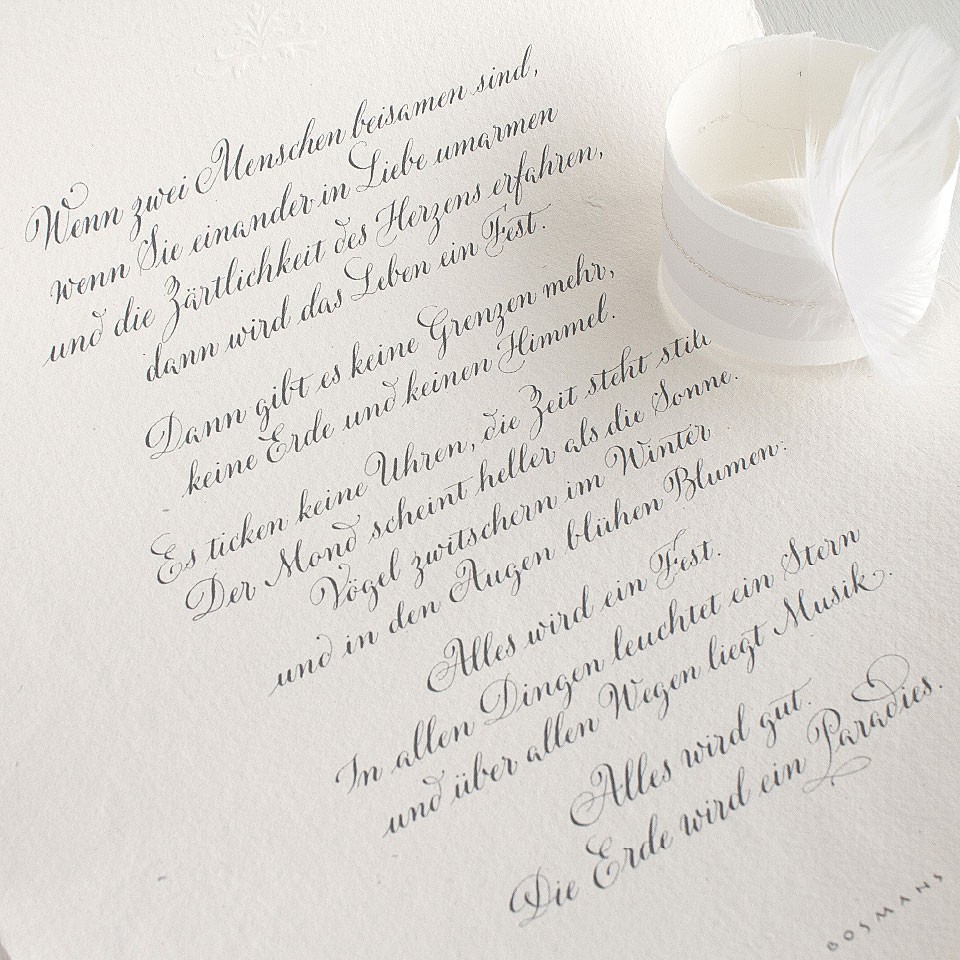 Wenn zwei Menschen beisamen sind,
wenn Sie einander in Liebe umarmen
und die Zärtlichkeit des Herzens erfahren,
dann wird das Leben ein Fest.
Dann gibt es keine Grenzen mehr,
keine Erde und keinen Himmel.
Es ticken keine Uhren, die Zeit steht still
Der Mond scheint heller als die Sonne.
Vögel zwitschern im Winter
und in den Augen blühen Blumen.
Alles wird ein Fest.
In allen Dingen leuchtet ein Stern
und über allen Wegen liegt Musik.
Alles wird gut.
Die Erde wird ein Paradies.
BOSMANS